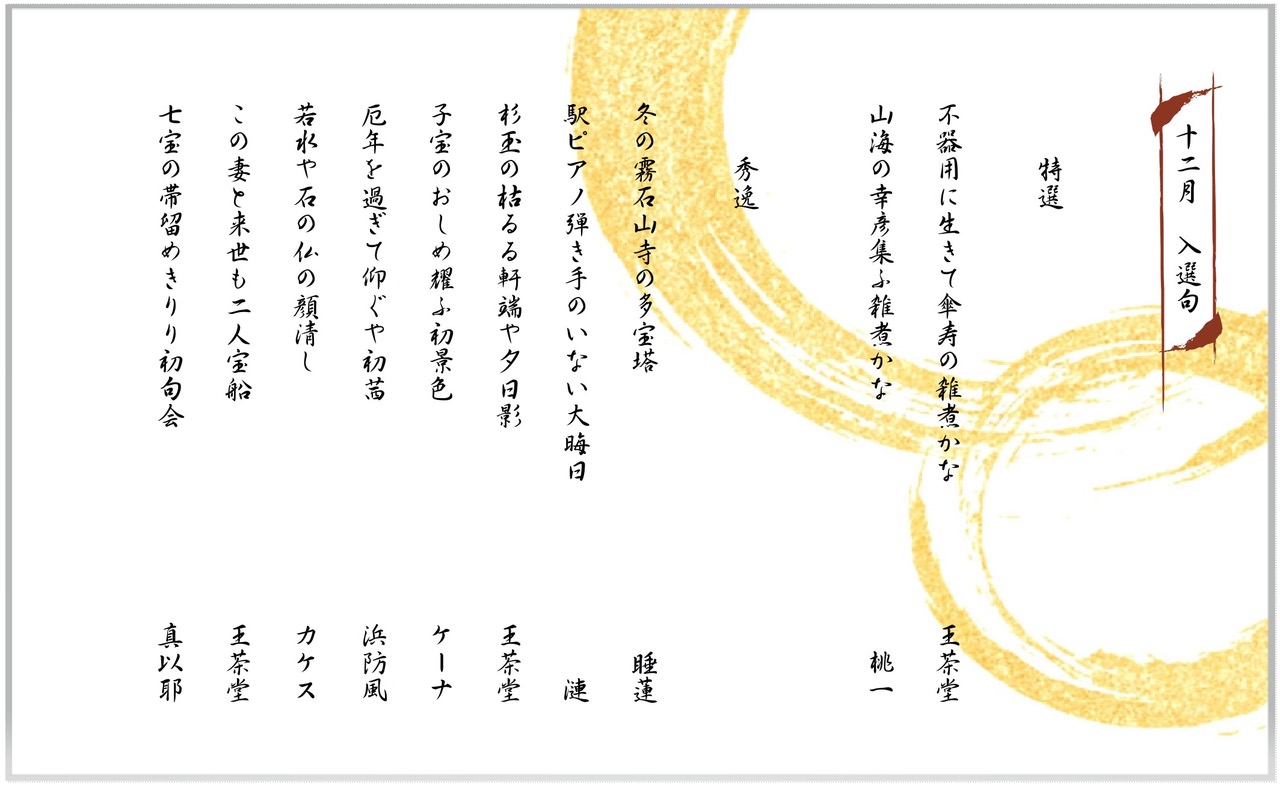 十二月　入選句
特選
不器用に生きて傘寿の雑煮かな　王茶堂
山海の幸彦集ふ雑煮かな　桃一
秀逸
冬の霧石山寺の多宝塔　睡蓮
駅ピアノ弾き手のいない大晦日　漣
杉玉の枯るる軒端や夕日影　王茶堂
子宝のおしめ耀ふ初景色　ケーナ
厄年を過ぎて仰ぐや初茜　浜防風
若水や石の仏の顔清し　カケス
この妻と来世も二人宝船　王茶堂
七宝の帯留めきりり初句会　真以耶